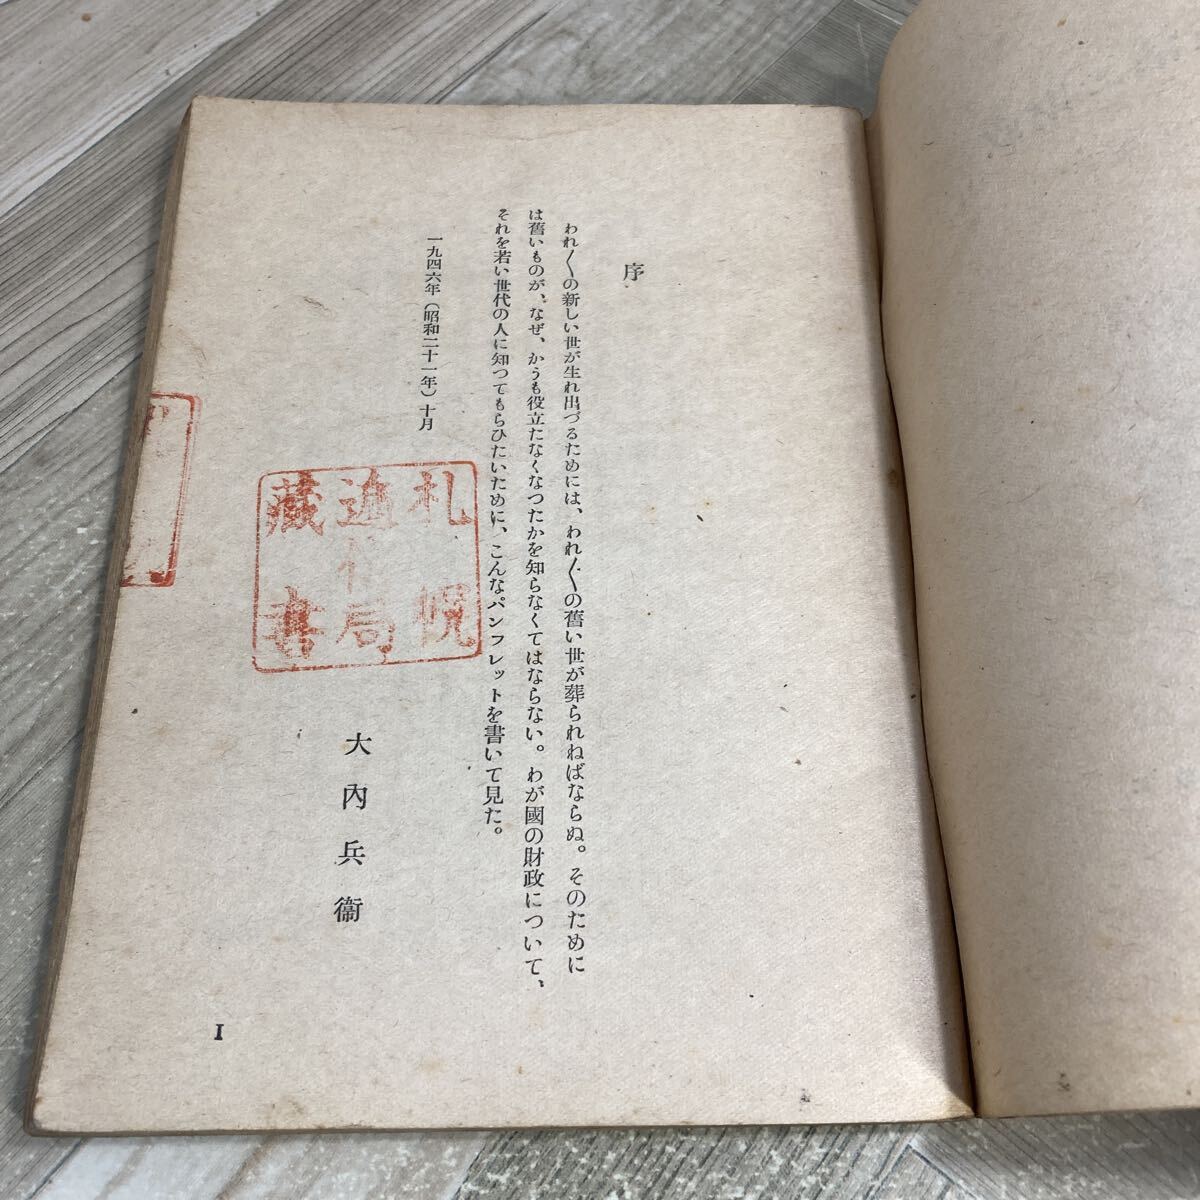 序
われ〳〵の新しい世が生れ出づるためには、われ〳〵の舊い世が葬られねばならぬ。そのために
は舊いものが、なぜ、かうも役立たなくなつたかを知らなくてはならない。わが國の財政について、
それを若い世代の人に知つてもらひたいために、こんなパンフレットを書いて見た。
一九四六年（昭和二十一年）十月
札幌
逓信局
藏書
大內兵衞
I